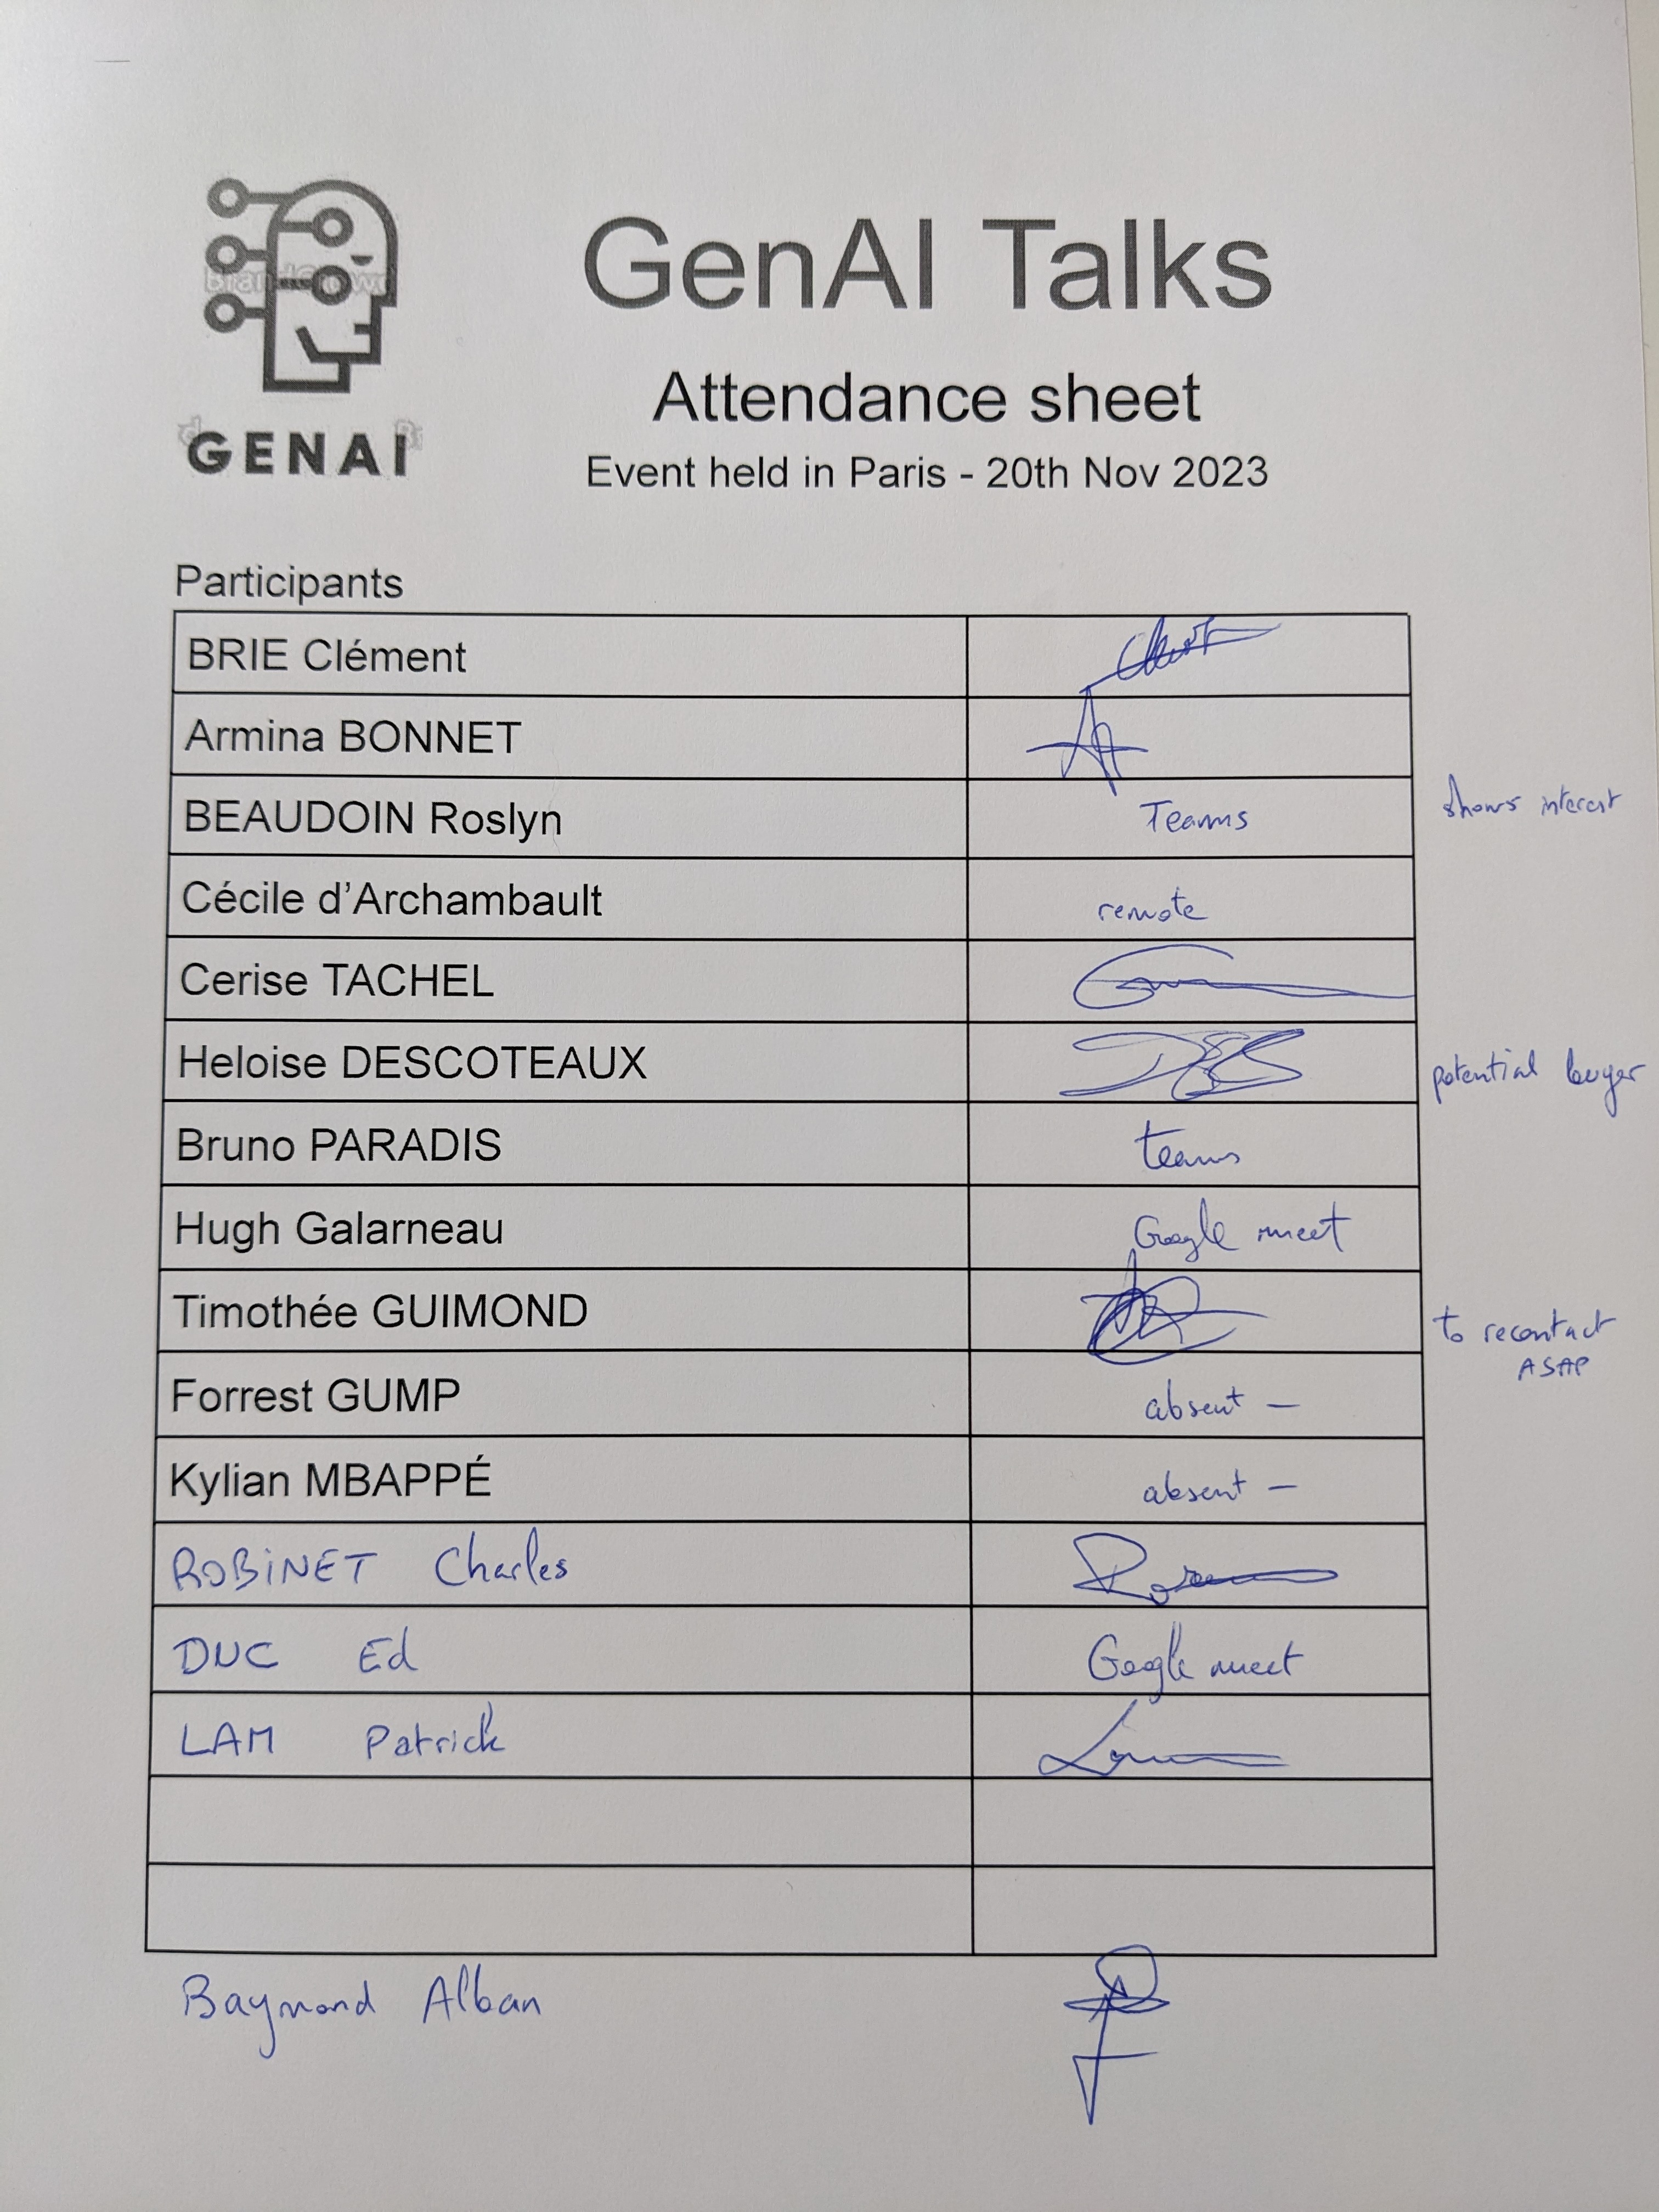 GenAI Talks
Attendance sheet
GENAI
Event held in Paris - 20th Nov 2023
Participants
BRIE Clément
Armina BONNET
BEAUDOIN Roslyn Teams shows interest
Cécile d'Archambault remote
Cerise TACHEL
Heloise DESCOTEAUX potential buyer
Bruno PARADIS teams
Hugh Galarneau Google meet
Timothée GUIMOND to recontact
ASAP
Forrest GUMP absent —
Kylian MBAPPÉ absent —
ROBINET Charles
DUC Ed Google meet
LAM Patrick
Baymond Alban